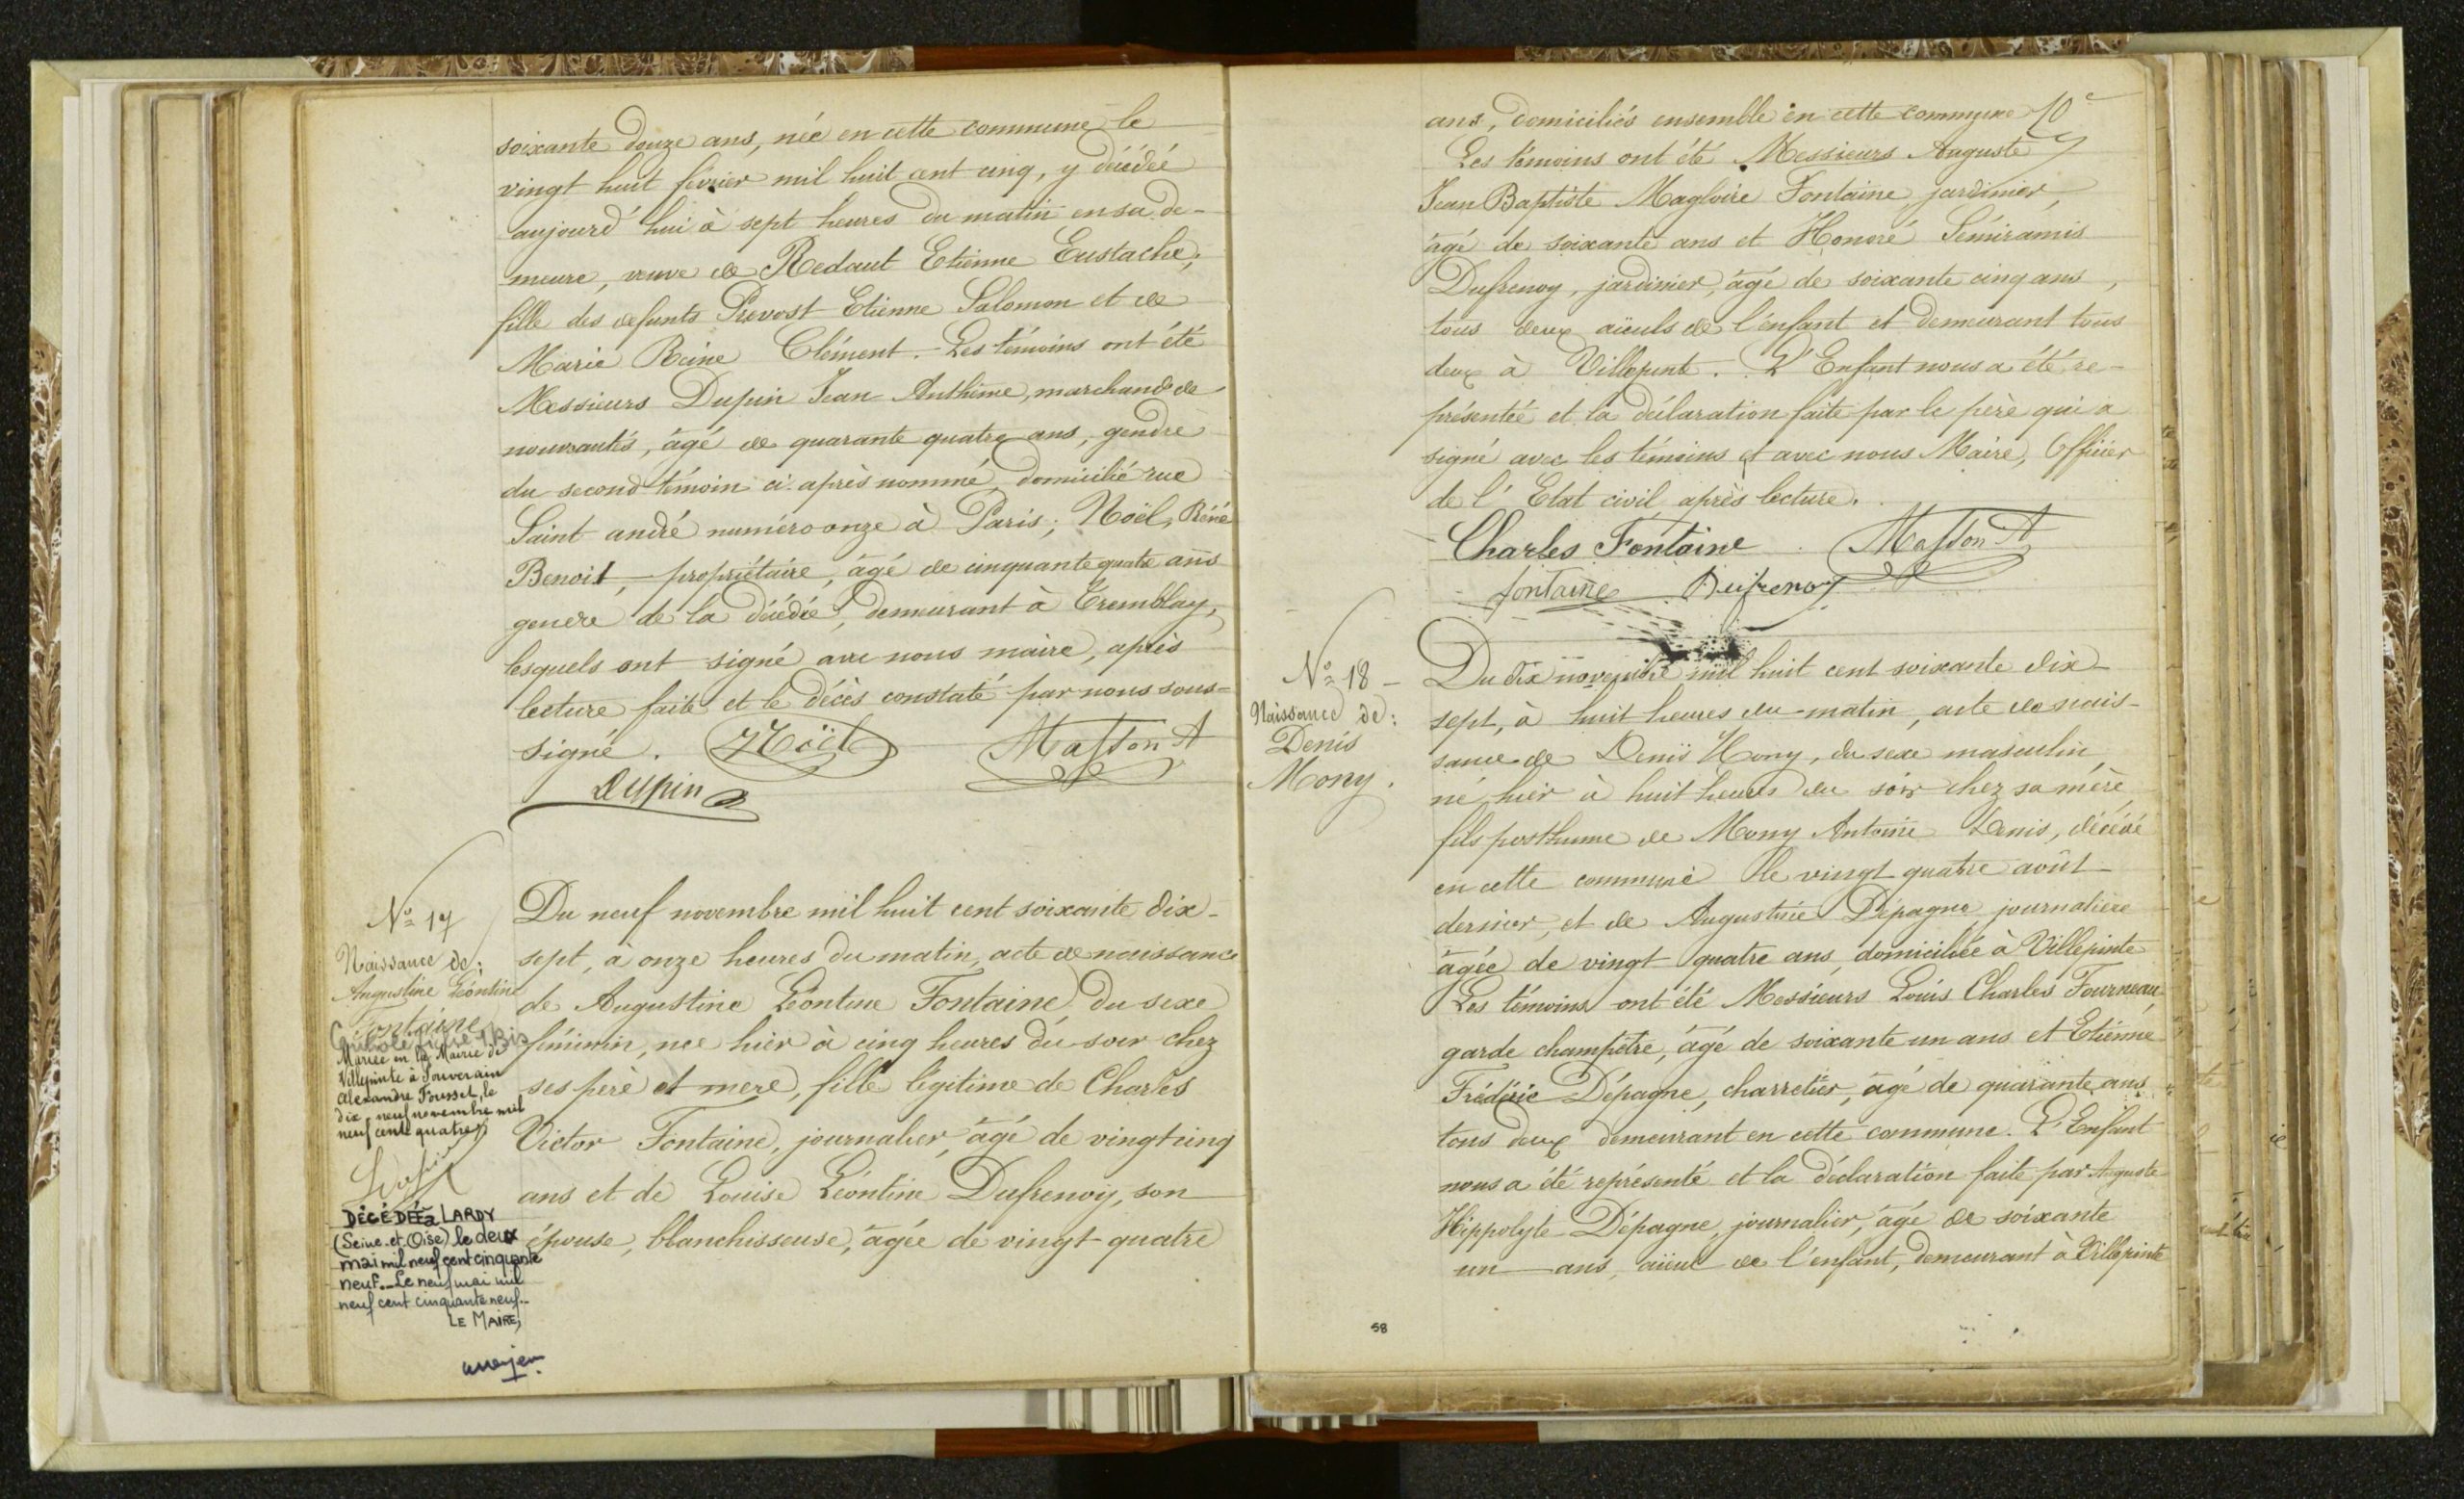 soixante douze ans, née en cette commune le
vingt huit février mil huit cent cinq, y décédée
aujourd'hui à sept heures du matin en sa de-
meure, veuve de Redaut Etienne Eustache,
fille des defunts Prevost Etienne Salomon et de
Marie Reine Clément. Les témoins ont été
Messieurs Dupin Jean Anthime, marchand de
nouveautés, âgé de quarante quatre ans, gendre
du second témoin ci-après nommé, domicilié rue
Saint andré numéro onze à Paris; Noël, Réné
Benoit, propriétaire, âgé de cinquante quatre ans
gendre de la décédée, demeurant à Tremblay,
lesquels ont signé avec nous maire, après
lecture faite et le décès constaté par nous sous-
signé. Noël Masson A
Dupin
No 17
Naissance de:
Augustine Léontine
Fontaine
Mariée en la Mairie de
Villepinte à Souverain
Alexandre Pousset, le
dix neuf novembre mil
neuf cent quatre
DÉCÉDÉE à LARDY
(Seine-et-Oise) le deux
mai mil neuf cent cinquante
neuf._Le neuf mai mil
neuf cent cinquante neuf._
LE MAIRE,
Du neuf novembre mil huit cent soixante dix-
sept, à onze heures du matin, acte de naissance
de Augustine Léontine Fontaine, du sexe
féminin, née hier à cinq heures du soir chez
ses père et mere, fille légitime de Charles
Victor Fontaine, journalier, âgé de vingt cinq
ans et de Louise Léontine Dufrenoy, son
épouse, blanchisseuse, âgée de vingt-quatre
ans, domiciliés ensemble en cette commune 10e
Les témoins ont été Messieurs Auguste
Jean Baptiste Magloire Fontaine, jardinier,
âgé de soixante ans et Honoré Sémiramis
Dufrenoy, jardinier, âgé de soixante cinq ans,
tous deux aïeuls de l'enfant et demeurant tous
deux à Villepinte. L'Enfant nous a été re-
présentée et la déclaration faite par le père qui a
signé avec les témoins et avec nous Maire, Officier
de l'Etat civil après lecture.
Charles Fontaine Masson A
fontaine Dufrenoy
No 18
Naissance de:
Denis
Mony.
Du dix novembre mil huit cent soixante dix-
sept, à huit heures du matin, acte de nais-
sance de Denis Mony, du sexe masculin,
né hier à huit heures du soir chez sa mère,
fils posthume de Mony Antoine Denis, décédé
en cette commune le vingt quatre août
dernier, et de Augustine Dépagne, journalière
âgée de vingt quatre ans, domiciliée à Villepinte
Les témoins ont été Messieurs Louis Charles Fourneau
garde champêtre, âgé de soixante un ans et Etienne
Frédéric Dépagne, charretier, âgé de quarante ans
tous deux demeurant en cette commune. L'Enfant
nous a été représenté et la déclaration faite par Auguste
Hippolyte Dépagne, journalier, âgé de soixante
un ans, aïeul de l'enfant, demeurant à Villepinte
58